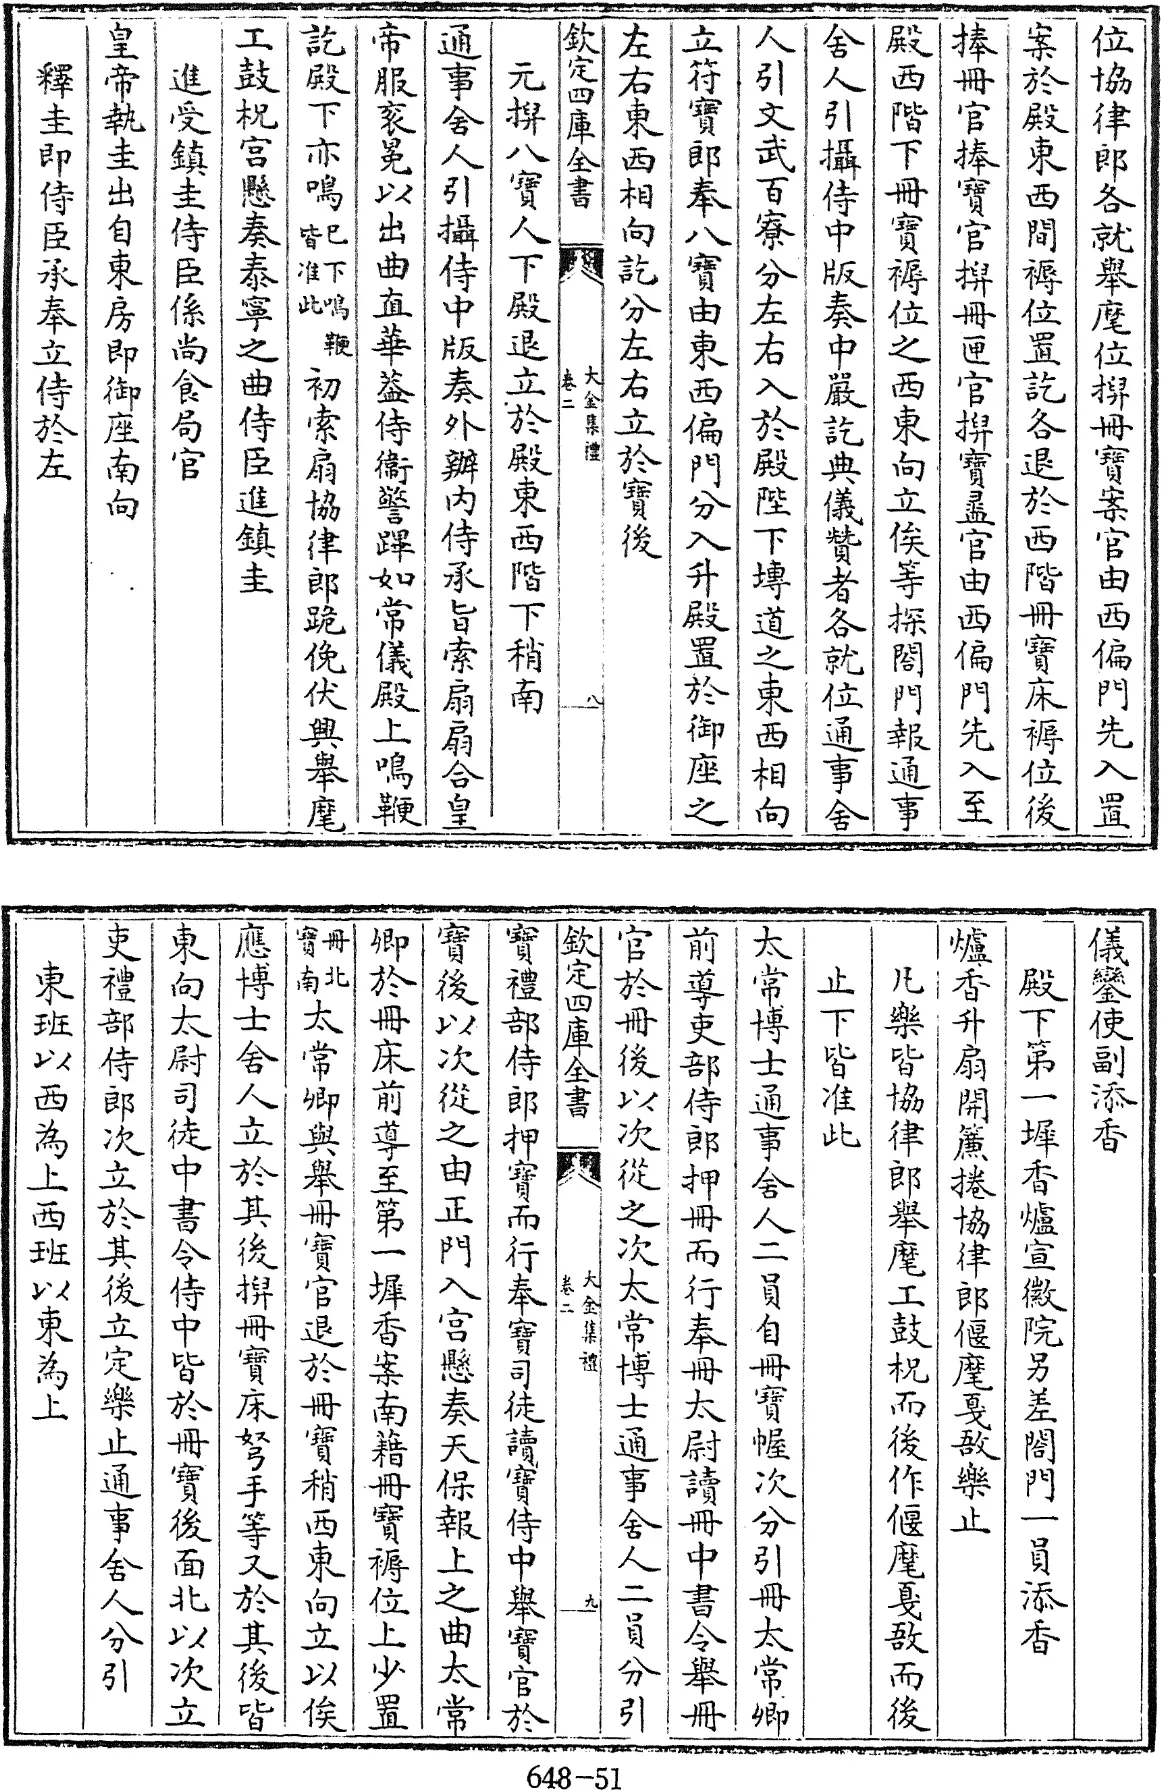 位協律郎各就舉麾位捧冊寶案官由西偏門先入置
案於殿東西間褥位置訖各退於西階冊寶床褥位後
捧冊官捧寶官捧冊匣官捧寶盝官由西偏門先入至
殿西階下冊寶褥位之西東向立俟等探閤門報通事
舍人引攝侍中版奏中嚴訖典儀贊者各就位通事舍
人引文武百寮分左右入於殿陛下塼道之東西相向
立符寶郎奉八寶由東西偏門分入升殿置於御座之
左右東西相向訖分左右立於寶後
欽定四庫全書 大金集禮 卷二 八
元捧八寶人下殿退立於殿東西階下稍南
通事舍人引攝侍中版奏外辦内侍承旨索扇扇合皇
帝服袞冕以出曲直華葢侍衛警蹕如常儀殿上鳴鞭
訖殿下亦鳴巳下鳴鞭皆准此初索扇協律郎跪俛伏興舉麾
工鼓柷宫懸奏泰寧之曲侍臣進鎮圭
進受鎮圭侍臣係尚食局官
皇帝執圭出自東房即御座南向
釋圭即侍臣承奉立侍於左
儀鑾使副添香
殿下第一墀香爐宣徽院另差閤門一員添香
爐香升扇開簾捲協律郎偃麾戛敔樂止
凡樂皆協律郎舉麾工鼓柷而後作偃麾戛敔而後
止下皆准此
太常博士通事舍人二員自冊寶幄次分引冊太常卿
前導吏部侍郎押冊而行奉冊太尉讀冊中書令舉冊
官於冊後以次從之次太常博士通事舍人二員分引
欽定四庫全書 大金集禮 卷二 九
寶禮部侍郎押寶而行奉寶司徒讀寶侍中舉寶官於
寶後以次從之由正門入宫懸奏天保報上之曲太常
卿於冊床前導至第一墀香案南籍冊寶褥位上少置
冊北寶南太常卿與舉冊寶官退於冊寶稍西東向立以俟
應博士舍人立於其後捧冊寶床弩手等又於其後皆
東向太尉司徒中書令侍中皆於冊寶後面北以次立
吏禮部侍郎次立於其後立定樂止通事舍人分引
東班以西為上西班以東為上
648-51